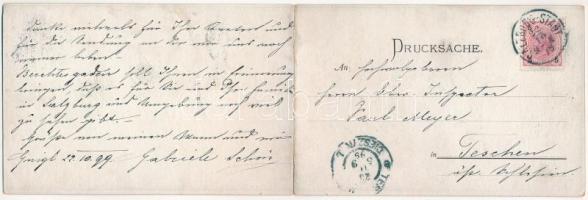 Danke vielmals für Ihr Kartenl und
für die Sendung an der wir uns noch
immer laben.
Berchtesgaden soll Ihnen in Erinnerung
bringen, daß es für Sie und Ihre Familie
in Salzburg und Umgebung noch viel
zu sehen gibt.
Grüße von meinem Mann und mir
Gnigl 22.10.99. Gabriele
DRUCKSACHE.
An Hochwohlgeboren
Herrn Inspector
Carl Meyer
in Teschen
Schlesien
SALZBURG-STADT
TESCHEN